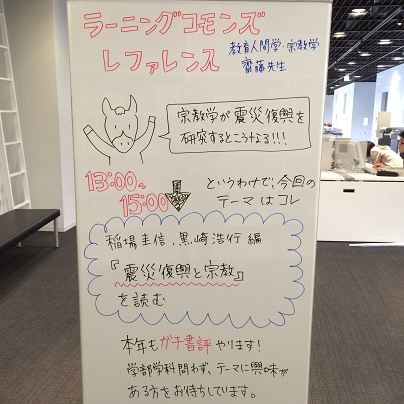 ラーニングコモンズ
レファレンス
教育人間学・宗教学
齋藤先生
宗教学が震災復興を
研究するとこうなる!!!
13:00~
15:00
というわけで、今回の
テーマはコレ
稲場圭信、黒崎浩行 編
『震災復興と宗教』
を読む
本年もガチ書評やります!
学部学科問わず、テーマに興味が
ある方をお待ちしています。